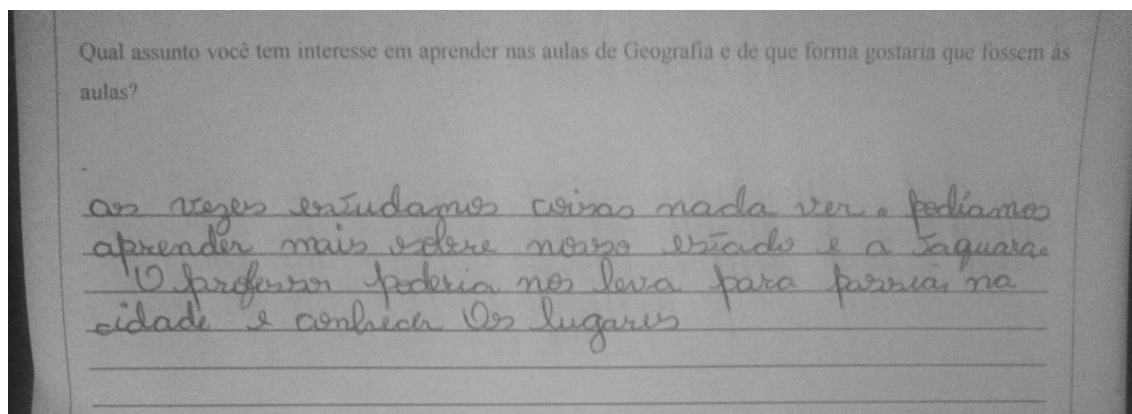 Qual assunto você tem interesse em aprender nas aulas de Geografia e de que forma gostaria que fossem ás
aulas?
as vezes estudamos coisas nada ver. podíamos
aprender mais sobre nosso estado e a Taquara.
O professor poderia nos leva para passia na
cidade e conhecer Os lugares